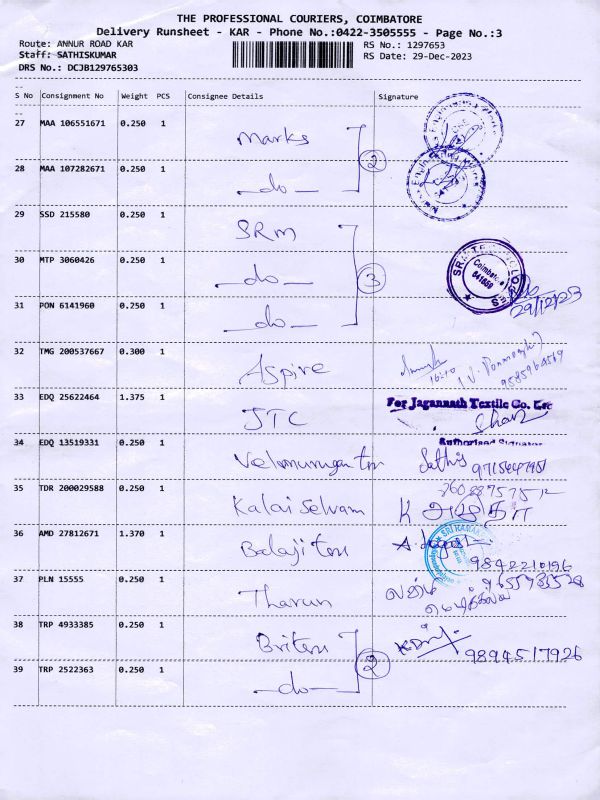 THE PROFESSIONAL COURIERS, COIMBATORE
Delivery Runsheet - KAR - Phone No.:0422-3505555 - Page No.:3
Route: ANNUR ROAD KAR
RS No.: 1297653
Staff: SATHISKUMAR
RS Date: 29-Dec-2023
DRS No.: DCJB129765303
S No Consignment No Weight PCS Consignee Details Signature
27 MAA 106551671 0.250 1 Marks
2
28 MAA 107282671 0.250 1 -do-
29 SSD 215580 0.250 1 SRM
30 MTP 3060426 0.250 1 -do-
3
Coimbatore
641659
29/12/23
31 PON 6141960 0.250 1 -do-
32 TMG 200537667 0.300 1 Aspire
16:10
9585964569
33 EDQ 25622464 1.375 1 JTC
For Jagannath Textile Co. Ltd
Authorised Signator
34 EDQ 13519331 0.250 1 Velamurugan tex Sathis 9715647951
35 TDR 200029588 0.250 1 Kalai Selvam
36 AMD 27812671 1.370 1 Balaji tex
9842210196
37 PLN 15555 0.250 1 Tharun
38 TRP 4933385 0.250 1 Britex
9894517926
2
39 TRP 2522363 0.250 1 -do-